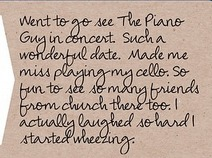 Went to go see The Piano
Guy in concert. Such a
wonderful date. Made me
miss playing my cello. So
fun to see so many friends
from church there too. I
actually laughed so hard I
started wheezing.